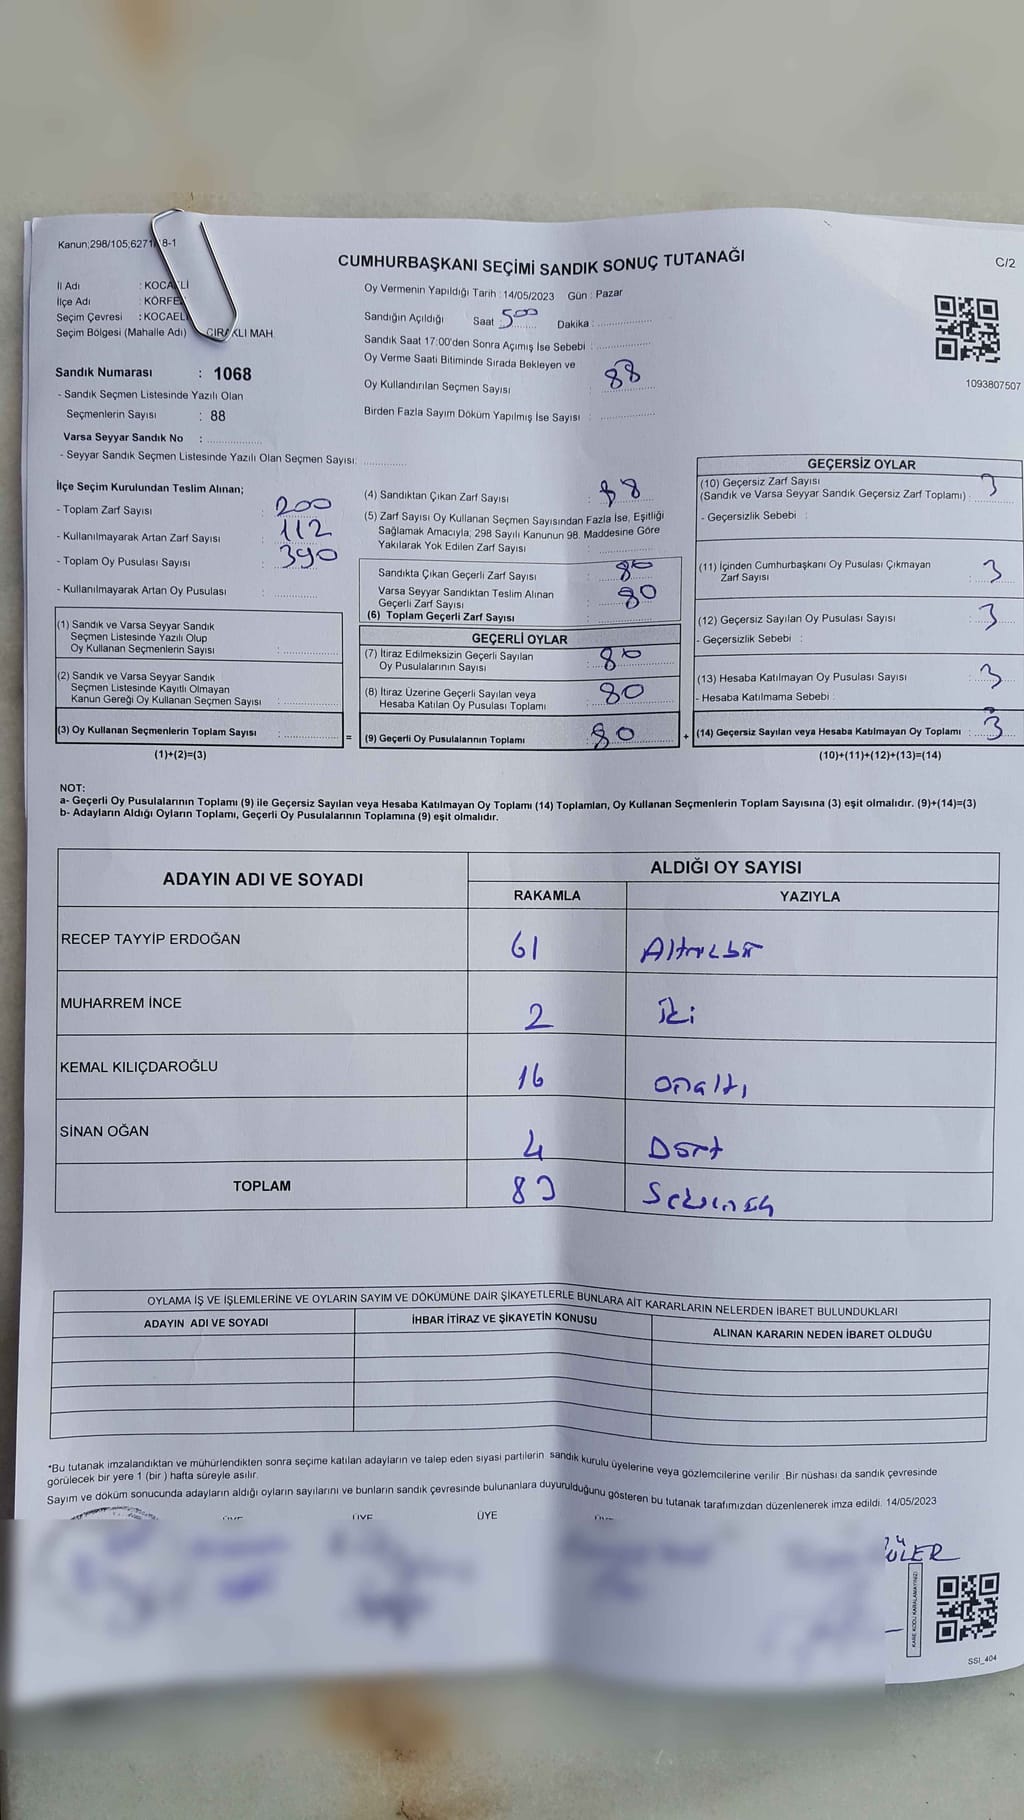 Kanun;298/105;6271 8-1
CUMHURBAŞKANI SEÇİMİ SANDIK SONUÇ TUTANAĞI
C/2
İl Adı : KOCA Lİ
İlçe Adı : KÖRFE
Seçim Çevresi : KOCAEL
Seçim Bölgesi (Mahalle Adı) ÇIRAKLI MAH.
Sandık Numarası : 1068
- Sandık Seçmen Listesinde Yazılı Olan
Seçmenlerin Sayısı : 88
Varsa Seyyar Sandık No :
- Seyyar Sandık Seçmen Listesinde Yazılı Olan Seçmen Sayısı:
Oy Vermenin Yapıldığı Tarih : 14/05/2023 Gün : Pazar
Sandığın Açıldığı Saat : 500 Dakika :
Sandık Saat 17:00'den Sonra Açımış İse Sebebi :
Oy Verme Saati Bitiminde Sırada Bekleyen ve
Oy Kullandırılan Seçmen Sayısı : 88
Birden Fazla Sayım Döküm Yapılmış İse Sayısı :
1093807507
İlçe Seçim Kurulundan Teslim Alınan;
- Toplam Zarf Sayısı : 200
- Kullanılmayarak Artan Zarf Sayısı : 112
- Toplam Oy Pusulası Sayısı : 390
- Kullanılmayarak Artan Oy Pusulası :
(1) Sandık ve Varsa Seyyar Sandık
Seçmen Listesinde Yazılı Olup
Oy Kullanan Seçmenlerin Sayısı :
(2) Sandık ve Varsa Seyyar Sandık
Seçmen Listesinde Kayıtlı Olmayan
Kanun Gereği Oy Kullanan Seçmen Sayısı :
(3) Oy Kullanan Seçmenlerin Toplam Sayısı :
(1)+(2)=(3)
(4) Sandıktan Çıkan Zarf Sayısı : 88
(5) Zarf Sayısı Oy Kullanan Seçmen Sayısından Fazla İse, Eşitliği
Sağlamak Amacıyla; 298 Sayılı Kanunun 98. Maddesine Göre
Yakılarak Yok Edilen Zarf Sayısı :
Sandıkta Çıkan Geçerli Zarf Sayısı : 80
Varsa Seyyar Sandıktan Teslim Alınan
Geçerli Zarf Sayısı : 80
(6) Toplam Geçerli Zarf Sayısı :
GEÇERLİ OYLAR
(7) İtiraz Edilmeksizin Geçerli Sayılan
Oy Pusulalarının Sayısı : 80
(8) İtiraz Üzerine Geçerli Sayılan veya
Hesaba Katılan Oy Pusulası Toplamı : 80
= (9) Geçerli Oy Pusulalarının Toplamı : 80
GEÇERSİZ OYLAR
(10) Geçersiz Zarf Sayısı
(Sandık ve Varsa Seyyar Sandık Geçersiz Zarf Toplamı) : 3
- Geçersizlik Sebebi :
(11) İçinden Cumhurbaşkanı Oy Pusulası Çıkmayan
Zarf Sayısı : 3
(12) Geçersiz Sayılan Oy Pusulası Sayısı : 3
- Geçersizlik Sebebi :
(13) Hesaba Katılmayan Oy Pusulası Sayısı : 3
- Hesaba Katılmama Sebebi :
+ (14) Geçersiz Sayılan veya Hesaba Katılmayan Oy Toplamı : 3
(10)+(11)+(12)+(13)=(14)
NOT:
a- Geçerli Oy Pusulalarının Toplamı (9) ile Geçersiz Sayılan veya Hesaba Katılmayan Oy Toplamı (14) Toplamları, Oy Kullanan Seçmenlerin Toplam Sayısına (3) eşit olmalıdır. (9)+(14)=(3)
b- Adayların Aldığı Oyların Toplamı, Geçerli Oy Pusulalarının Toplamına (9) eşit olmalıdır.
ADAYIN ADI VE SOYADI
ALDIĞI OY SAYISI
RAKAMLA YAZIYLA
RECEP TAYYİP ERDOĞAN 61 Altmışbir
MUHARREM İNCE 2 İki
KEMAL KILIÇDAROĞLU 16 onaltı
SİNAN OĞAN 4 Dört
TOPLAM 83
OYLAMA İŞ VE İŞLEMLERİNE VE OYLARIN SAYIM VE DÖKÜMÜNE DAİR ŞİKAYETLERLE BUNLARA AİT KARARLARIN NELERDEN İBARET BULUNDUKLARI
ADAYIN ADI VE SOYADI İHBAR İTİRAZ VE ŞİKAYETİN KONUSU ALINAN KARARIN NEDEN İBARET OLDUĞU
*Bu tutanak imzalandıktan ve mühürlendikten sonra seçime katılan adayların ve talep eden siyasi partilerin sandık kurulu üyelerine veya gözlemcilerine verilir. Bir nüshası da sandık çevresinde
görülecek bir yere 1 (bir ) hafta süreyle asılır.
Sayım ve döküm sonucunda adayların aldığı oyların sayılarını ve bunların sandık çevresinde bulunanlara duyurulduğunu gösteren bu tutanak tarafımızdan düzenlenerek imza edildi. 14/05/2023
ÜYE ÜYE ÜYE
KARE KODU KARALAMAYINIZ!
SSI_404